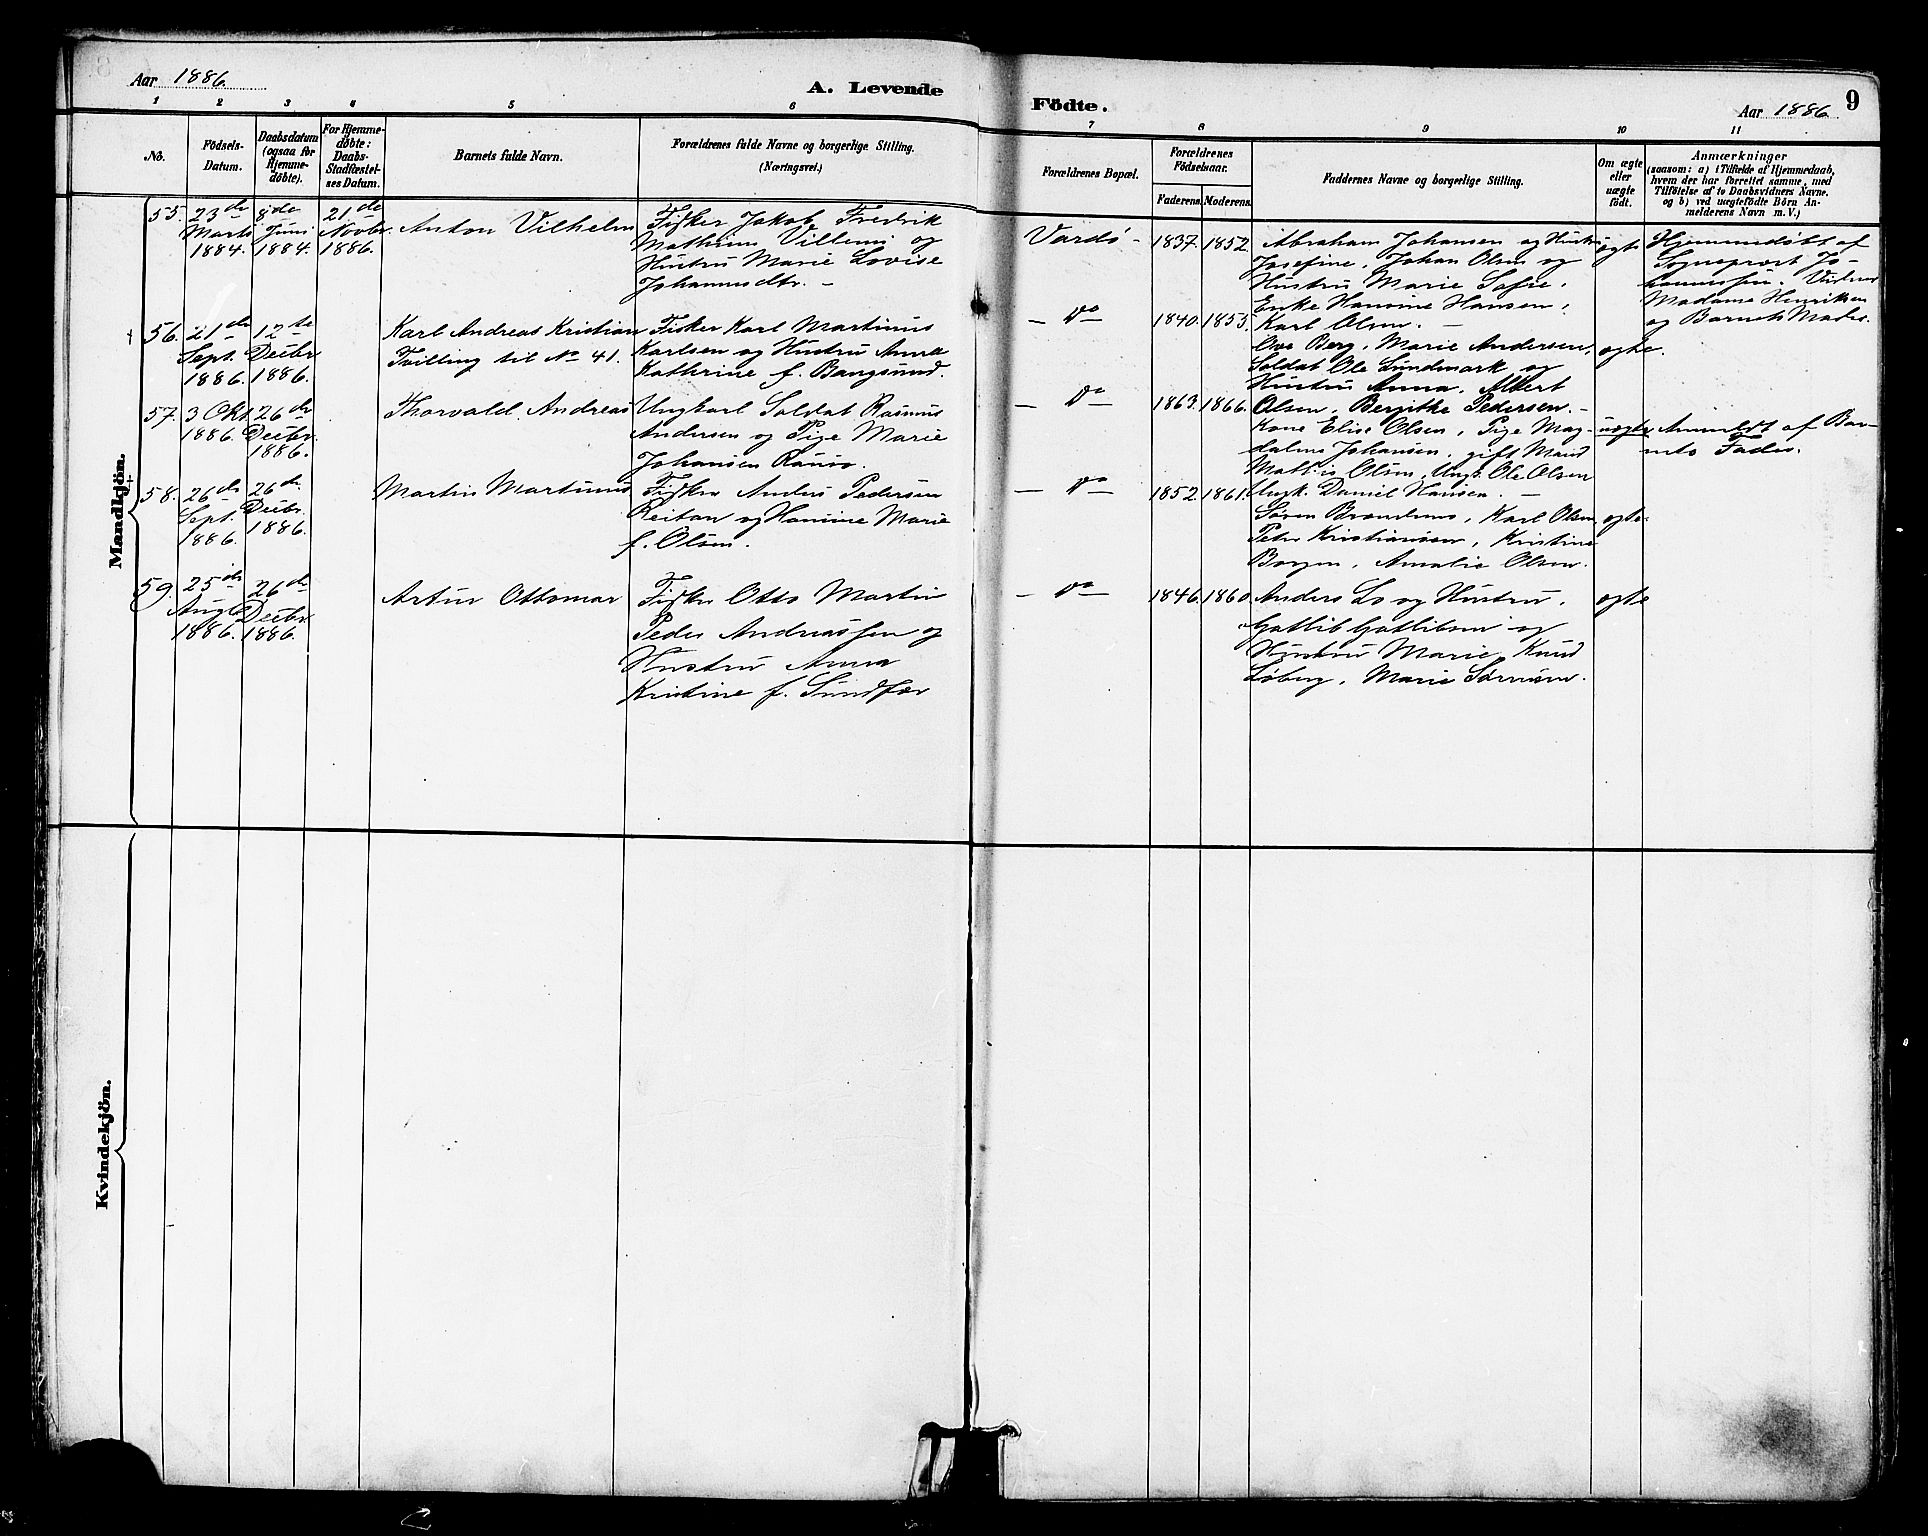 Aar 1886.
A. Levende
Födte.
Aar 1886.
9
1 2 3 4 5 6 7 8 9 10 11
No.
Födsels-
Datum.
Daabsdatum
(ogsaa for
Hjemme-
døbte).
For Hjemme-
døbte:
Daabs-
Stadfæstel-
ses Datum.
Barnets fulde Navn.
Forældrenes fulde Navne og borgerlige Stilling.
(Næringsvei.)
Forældrenes Bopæl.
Forældrenes
Födselsaar.
Faderens. Moderens.
Faddernes Navne og borgerlige Stilling.
Om ægte
eller
uægte
födt.
Anmærkninger
(saasom: a) i Tilfælde af Hjemmedaab,
hvem der har forrettet samme, med
Tilföielse af to Daabsvidners Navne.
og b) ved uægtefödte Börn An-
melderens Navn m. V.)
Mandkjön.
55.
23de
Marts
1884.
8de
Juni
1884.
21de
Novbr.
1886.
Anton Vilhelm
Fisker Jakob Fredrik
Mathius Villems og
Hustru Marie Lovise
Johannesdtr. –
Vardö –
1837. 1852.
Abraham Johansen og Hustru
Josefine, Johan Olsen og
Hustru Marie Sofie,
Enke Hansine Hansen,
Karl Olsen. –
ægte
Hjemmedøbt af
Sogneprest Jo-
hannessen. Vidner
Madame Henriksen
og Barnets Moder.
56.
21de
Sept.
1886.
12te
Decbr.
1886.
Karl Andreas Kristian
Tvilling til No 41.
Fisker Karl Martinus
Karlsen og Hustru Anna
Kathrine f. Bangsund.
– do –
1840. 1853.
Ove Berg, Marie Andersen,
Soldat Ole Sundmark og
Hustru Anna, Albert
Olsen, Bergithe Pedersen. –
ægte.
57.
3 Okt.
1886.
26de
Decbr.
1886.
Thorvald Andreas
Ungkarl Soldat Rasmus
Andersen og Pige Marie
Johansen
– do –
1863. 1866.
Kone Elise Olsen, Pige Mag-
dalena Johansen, gift Mand
Mathis Olsen, Ungk. Ole Olsen
Ungk. Daniel Hansen. –
uægte
Anmeldt af Bar-
nets Fader.
58.
26de
Sept.
1886.
26de
Decbr.
1886.
Martin Martinus
Fisker Anders Pedersen
Reitan og Hansine Marie
f. Olsen.
– do –
1852. 1861.
Søren, Karl Olsen
Peter Kristiansen, Kristine
Borgen, Amalie Olsen.
ægte.
59.
25de
Aug.
1886.
26de
Decbr.
1886.
Artur Ottomar
Fisker Otto Martin
Peder Andreassen og
Hustru Anna
Kristine f. Sundfær
– do –
1846. 1860.
Anders Lo og Hustru,
Gotlib Gotlibsen og
Hustru Marie, Knud
Løberg, Marie Sørensen.
ægte
Kvindekjön.